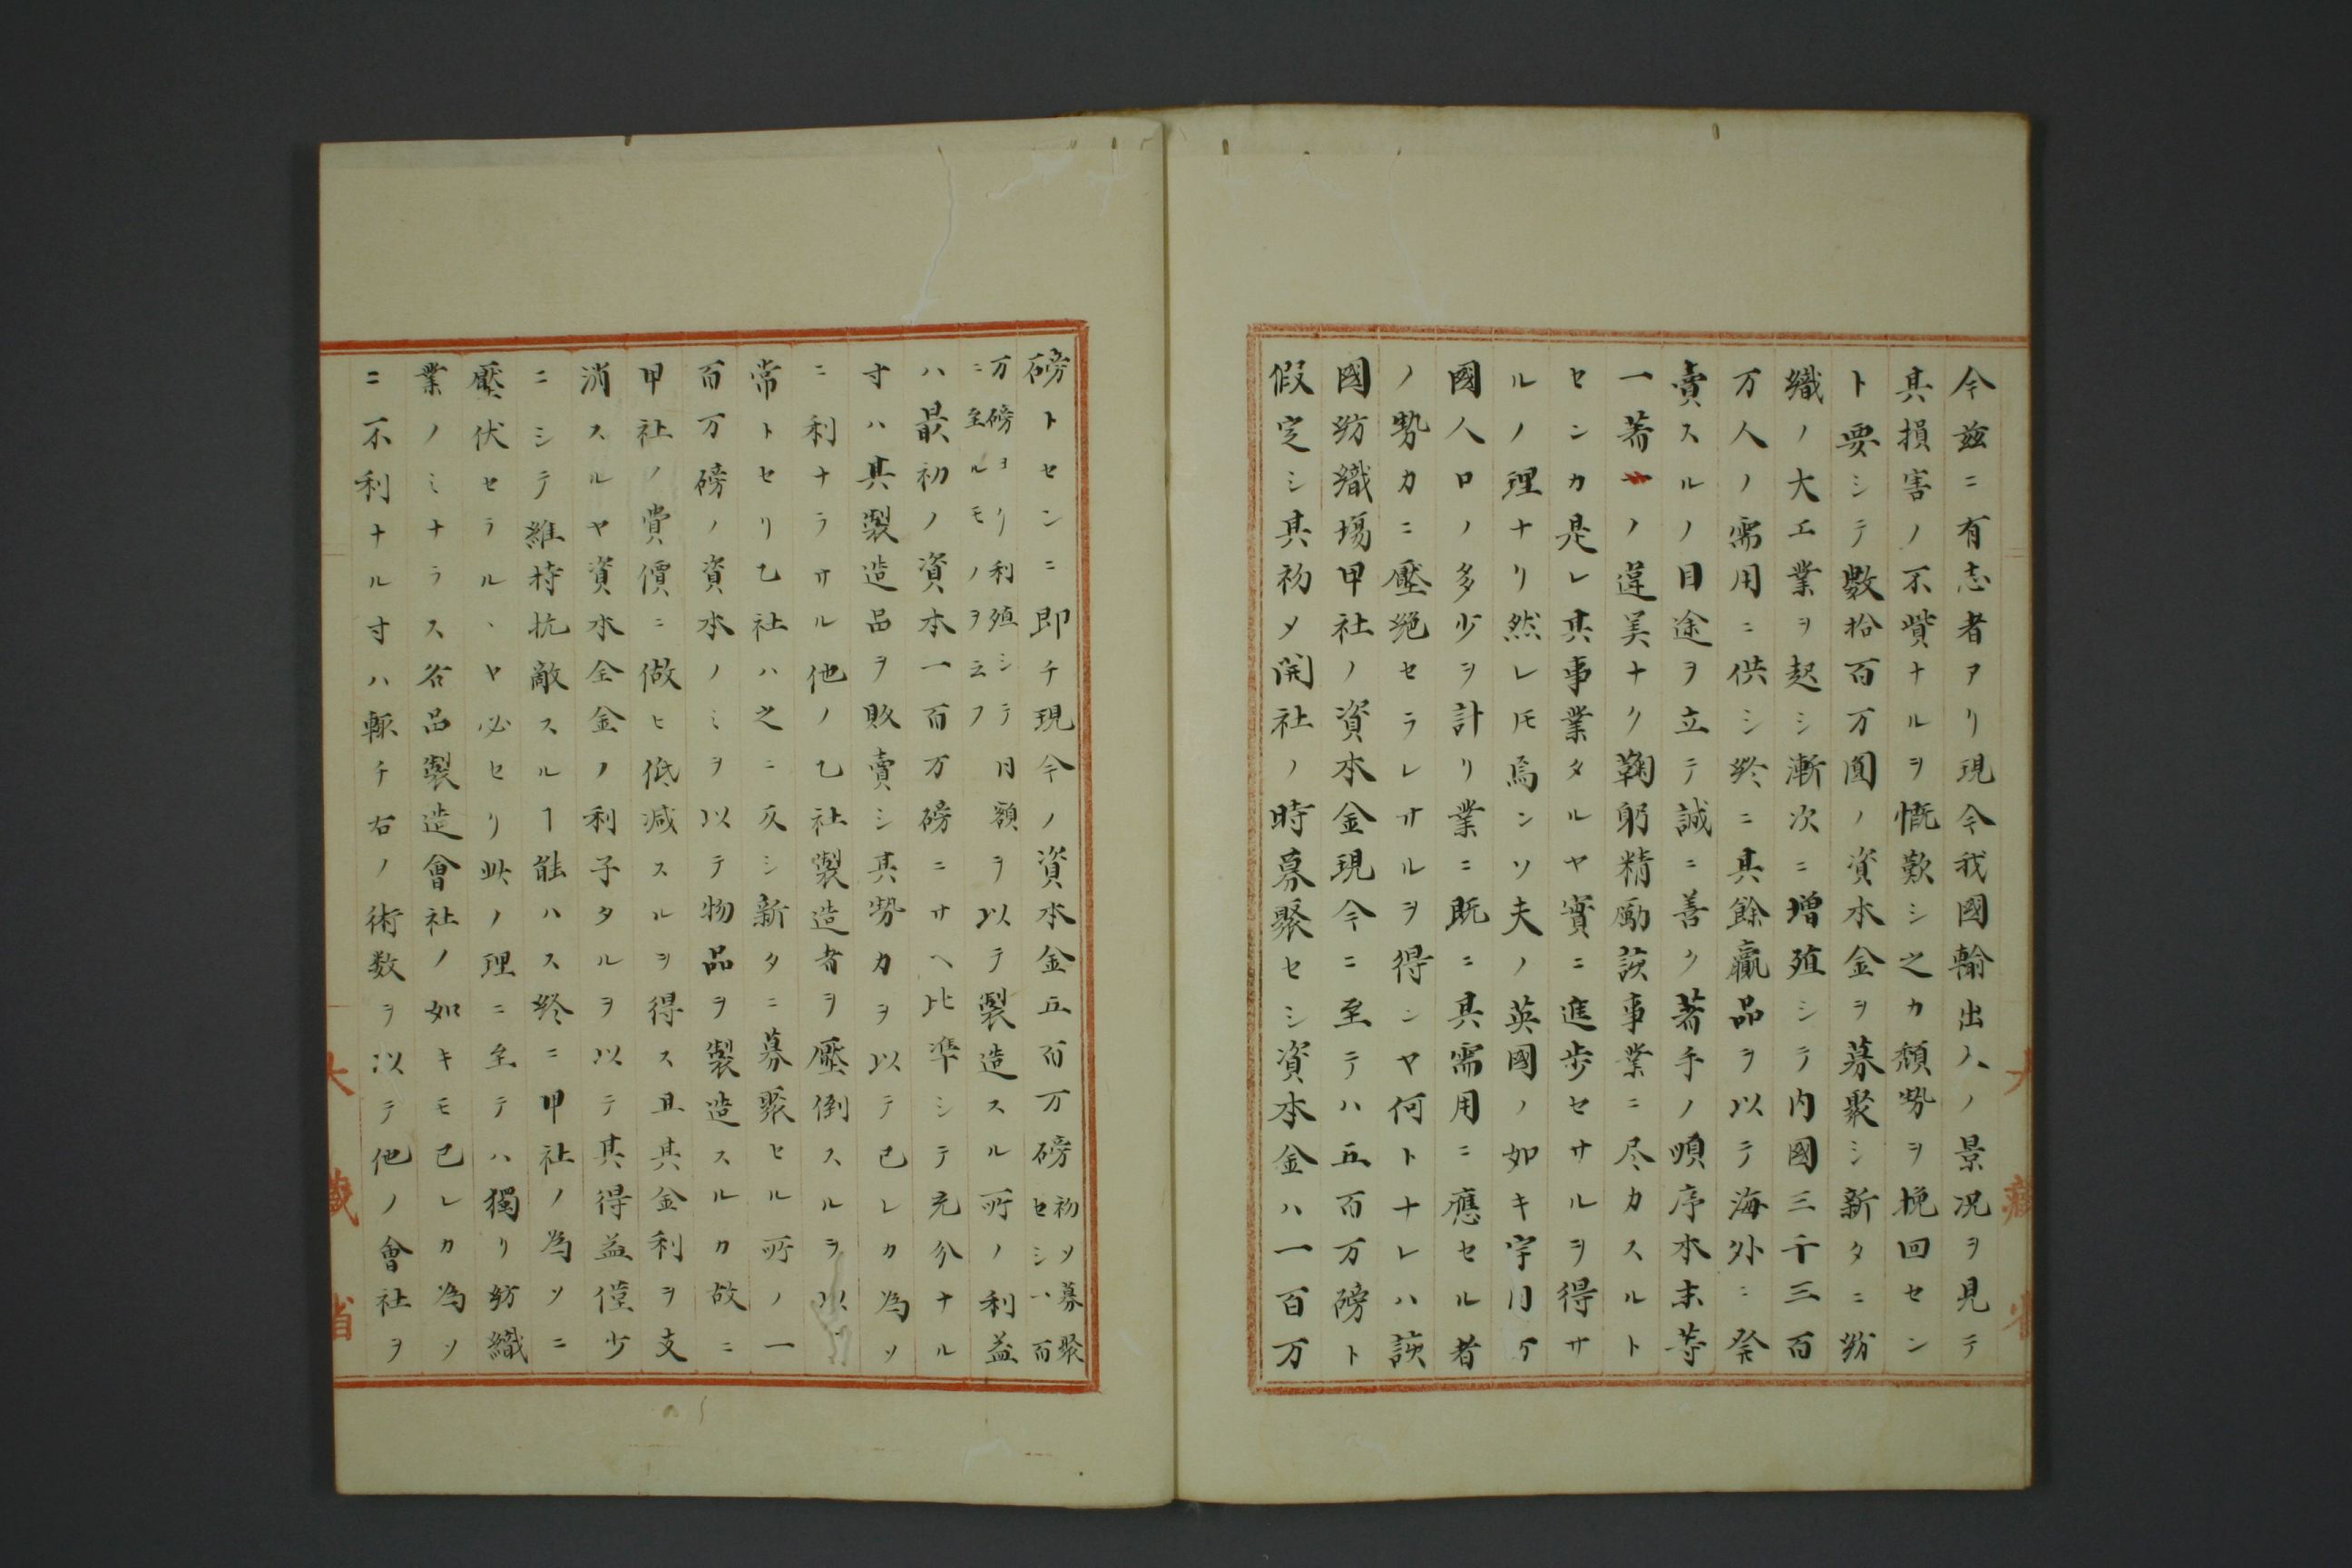 今茲ニ有志者アリ現今我國輸出入ノ景況ヲ見テ
其損害ノ不貲ナルヲ慨歎シ之カ頽勢ヲ挽回セン
ト要シテ數拾百万圓ノ資本金ヲ募聚シ新タニ紡
織ノ大工業ヲ起シ漸次ニ増殖シテ内國三千三百
万人ノ需用ニ供シ終ニ其餘贏品ヲ以テ海外ニ発
賣スルノ目途ヲ立テ誠ニ善ク著手ノ順序本末等
一著々ノ違算ナク鞠躬精勵該事業ニ尽力スルト
センカ是レ其事業タルヤ實ニ進歩セサルヲ得サ
ルノ理ナリ然レ𪜈焉ンソ夫ノ英國ノ如キ宇
國人口ノ多少ヲ計リ業ニ既ニ其需用ニ應セル者
ノ勢力ニ壓絶セラレサルヲ得ンヤ何トナレハ該
國紡織場甲社ノ資本金現今ニ至テハ五百万磅ト
假定シ其初メ開社ノ時募聚セシ資本金ハ一百万
磅トセンニ即チ現今ノ資本金五百万磅初メ募聚セシ一百
万磅ヨリ利殖シテニ至ルモノヲ云フ月額ヲ以テ製造スル所ノ利益
ハ最初ノ資本一百万磅ニサヘ比準シテ充分ナル
寸ハ其製造品ヲ販賣シ其勢力ヲ以テ己レカ為メ
ニ利ナラサル他ノ乙社製造者ヲ壓倒スルヲ以
常トセリ乙社ハ之ニ反シ新タニ募聚セル所ノ一
百万磅ノ資本ノミヲ以テ物品ヲ製造スルカ故ニ
甲社ノ賣價ニ倣ヒ低减スルヲ得ス且其金利ヲ支
消スルヤ資本全金ノ利子タルヲ以テ其得益僅少
ニシテ維持抗敵スルヿ能ハス終ニ甲社ノ為メニ
壓伏セラルヽヤ必セリ此ノ理ニ至テハ獨リ紡織
業ノミナラス各品製造會社ノ如キモ己レカ為メ
ニ不利ナル寸ハ輙チ右ノ術数ヲ以テ他ノ會社ヲ
大藏省